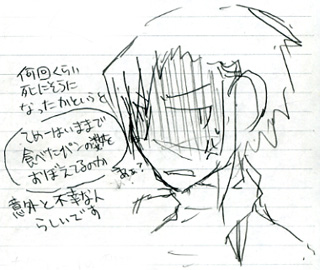 何回くらい
死にそうに
なったかというと
てめーはいままで
食べたパンの数を
おぼえてるのか
あぁ?
意外と不幸な人
らしいです